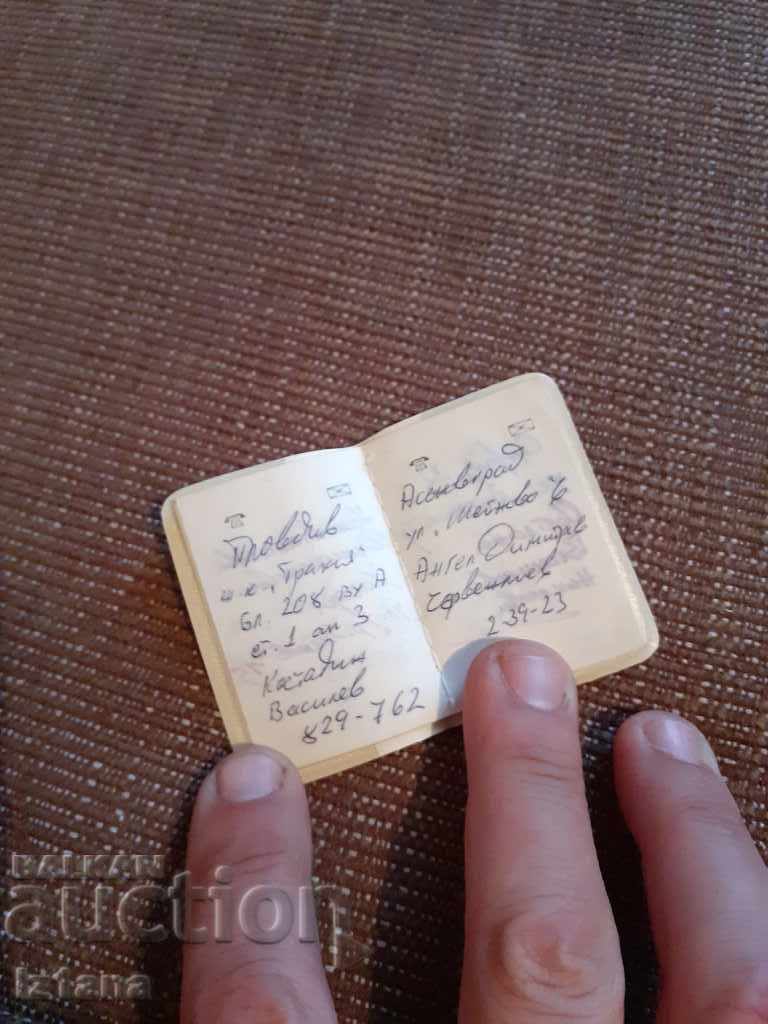 Пловдив
ж.к. "Тракия"
бл. 208 вх А
ет. 1 ап 3
Костадин
Василев
829-762
Асеновград
ул. "Шейново" 6
Ангел Димитров
2-39-23
BALKAN
auction
Iztana